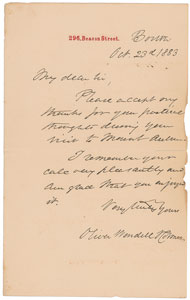 296, Beacon Street.
Boston
Oct. 23rd 1883
My dear Sir,
Please accept my
thanks for your
thoughts during your
visit to Mount Auburn.
I remember your
very pleasantly and
am glad that you enjoyed
it.
Very truly yours
Oliver Wendell Holmes